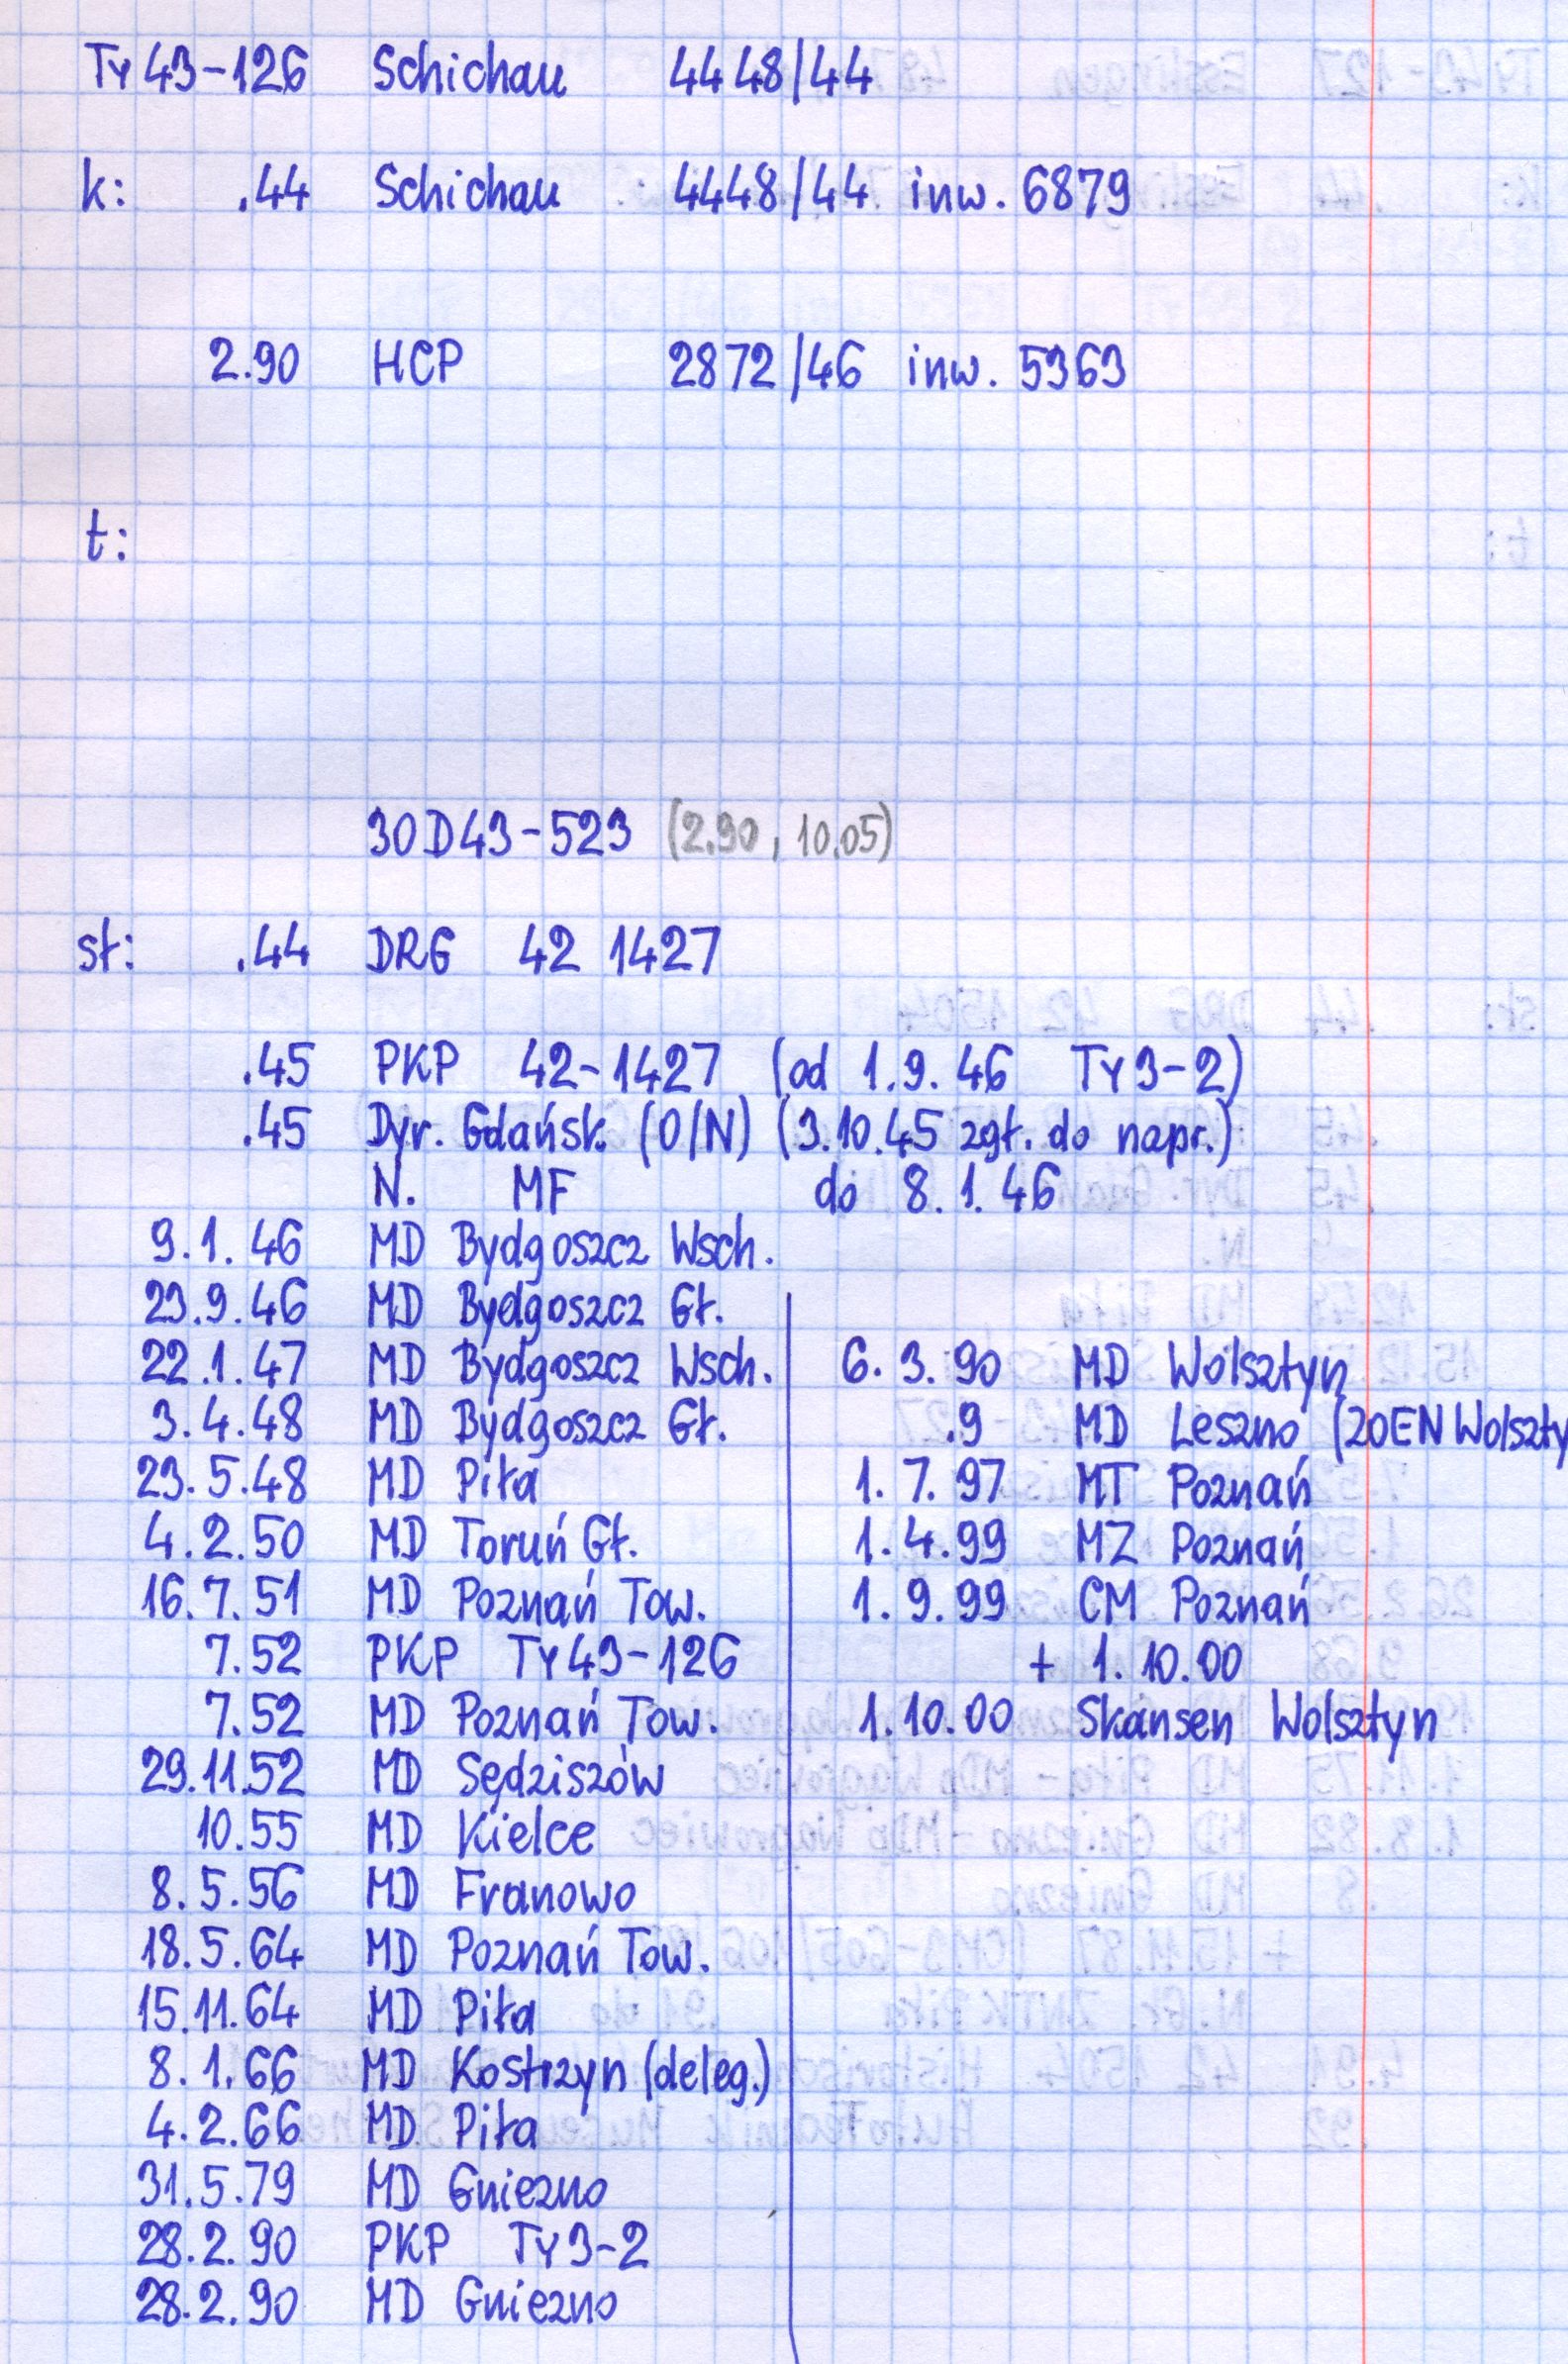 Ty43-126 Schichau 4448/44
k: .44 Schichau 4448/44 inw. 6879
2.90 HCP 2872/46 inw. 5363
t:
30D43-523 (2.90, 10.05)
st: .44 DRG 42 1427
.45 PKP 42-1427 (od 1.9.46 Ty3-2)
.45 Dyr. Gdańsk (O/N) (3.10.45 zgł. do napr.)
N. MF do 8.1.46
9.1.46 MD Bydgoszcz Wsch.
23.9.46 MD Bydgoszcz Gł.
22.1.47 MD Bydgoszcz Wsch.
3.4.48 MD Bydgoszcz Gł.
23.5.48 MD Piła
4.2.50 MD Toruń Gł.
16.7.51 MD Poznań Tow.
7.52 PKP Ty43-126
7.52 MD Poznań Tow.
29.11.52 MD Sędziszów
10.55 MD Kielce
8.5.56 MD Franowo
18.5.64 MD Poznań Tow.
15.11.64 MD Piła
8.1.66 MD Kostrzyn (deleg.)
4.2.66 MD Piła
31.5.79 MD Gniezno
28.2.90 PKP Ty3-2
28.2.90 MD Gniezno
6.3.90 MD Wolsztyn
.9 MD Leszno (20EN Wolszty
1.7.97 MT Poznań
1.4.99 MZ Poznań
1.9.99 CM Poznań
+ 1.10.00
1.10.00 Skansen Wolsztyn